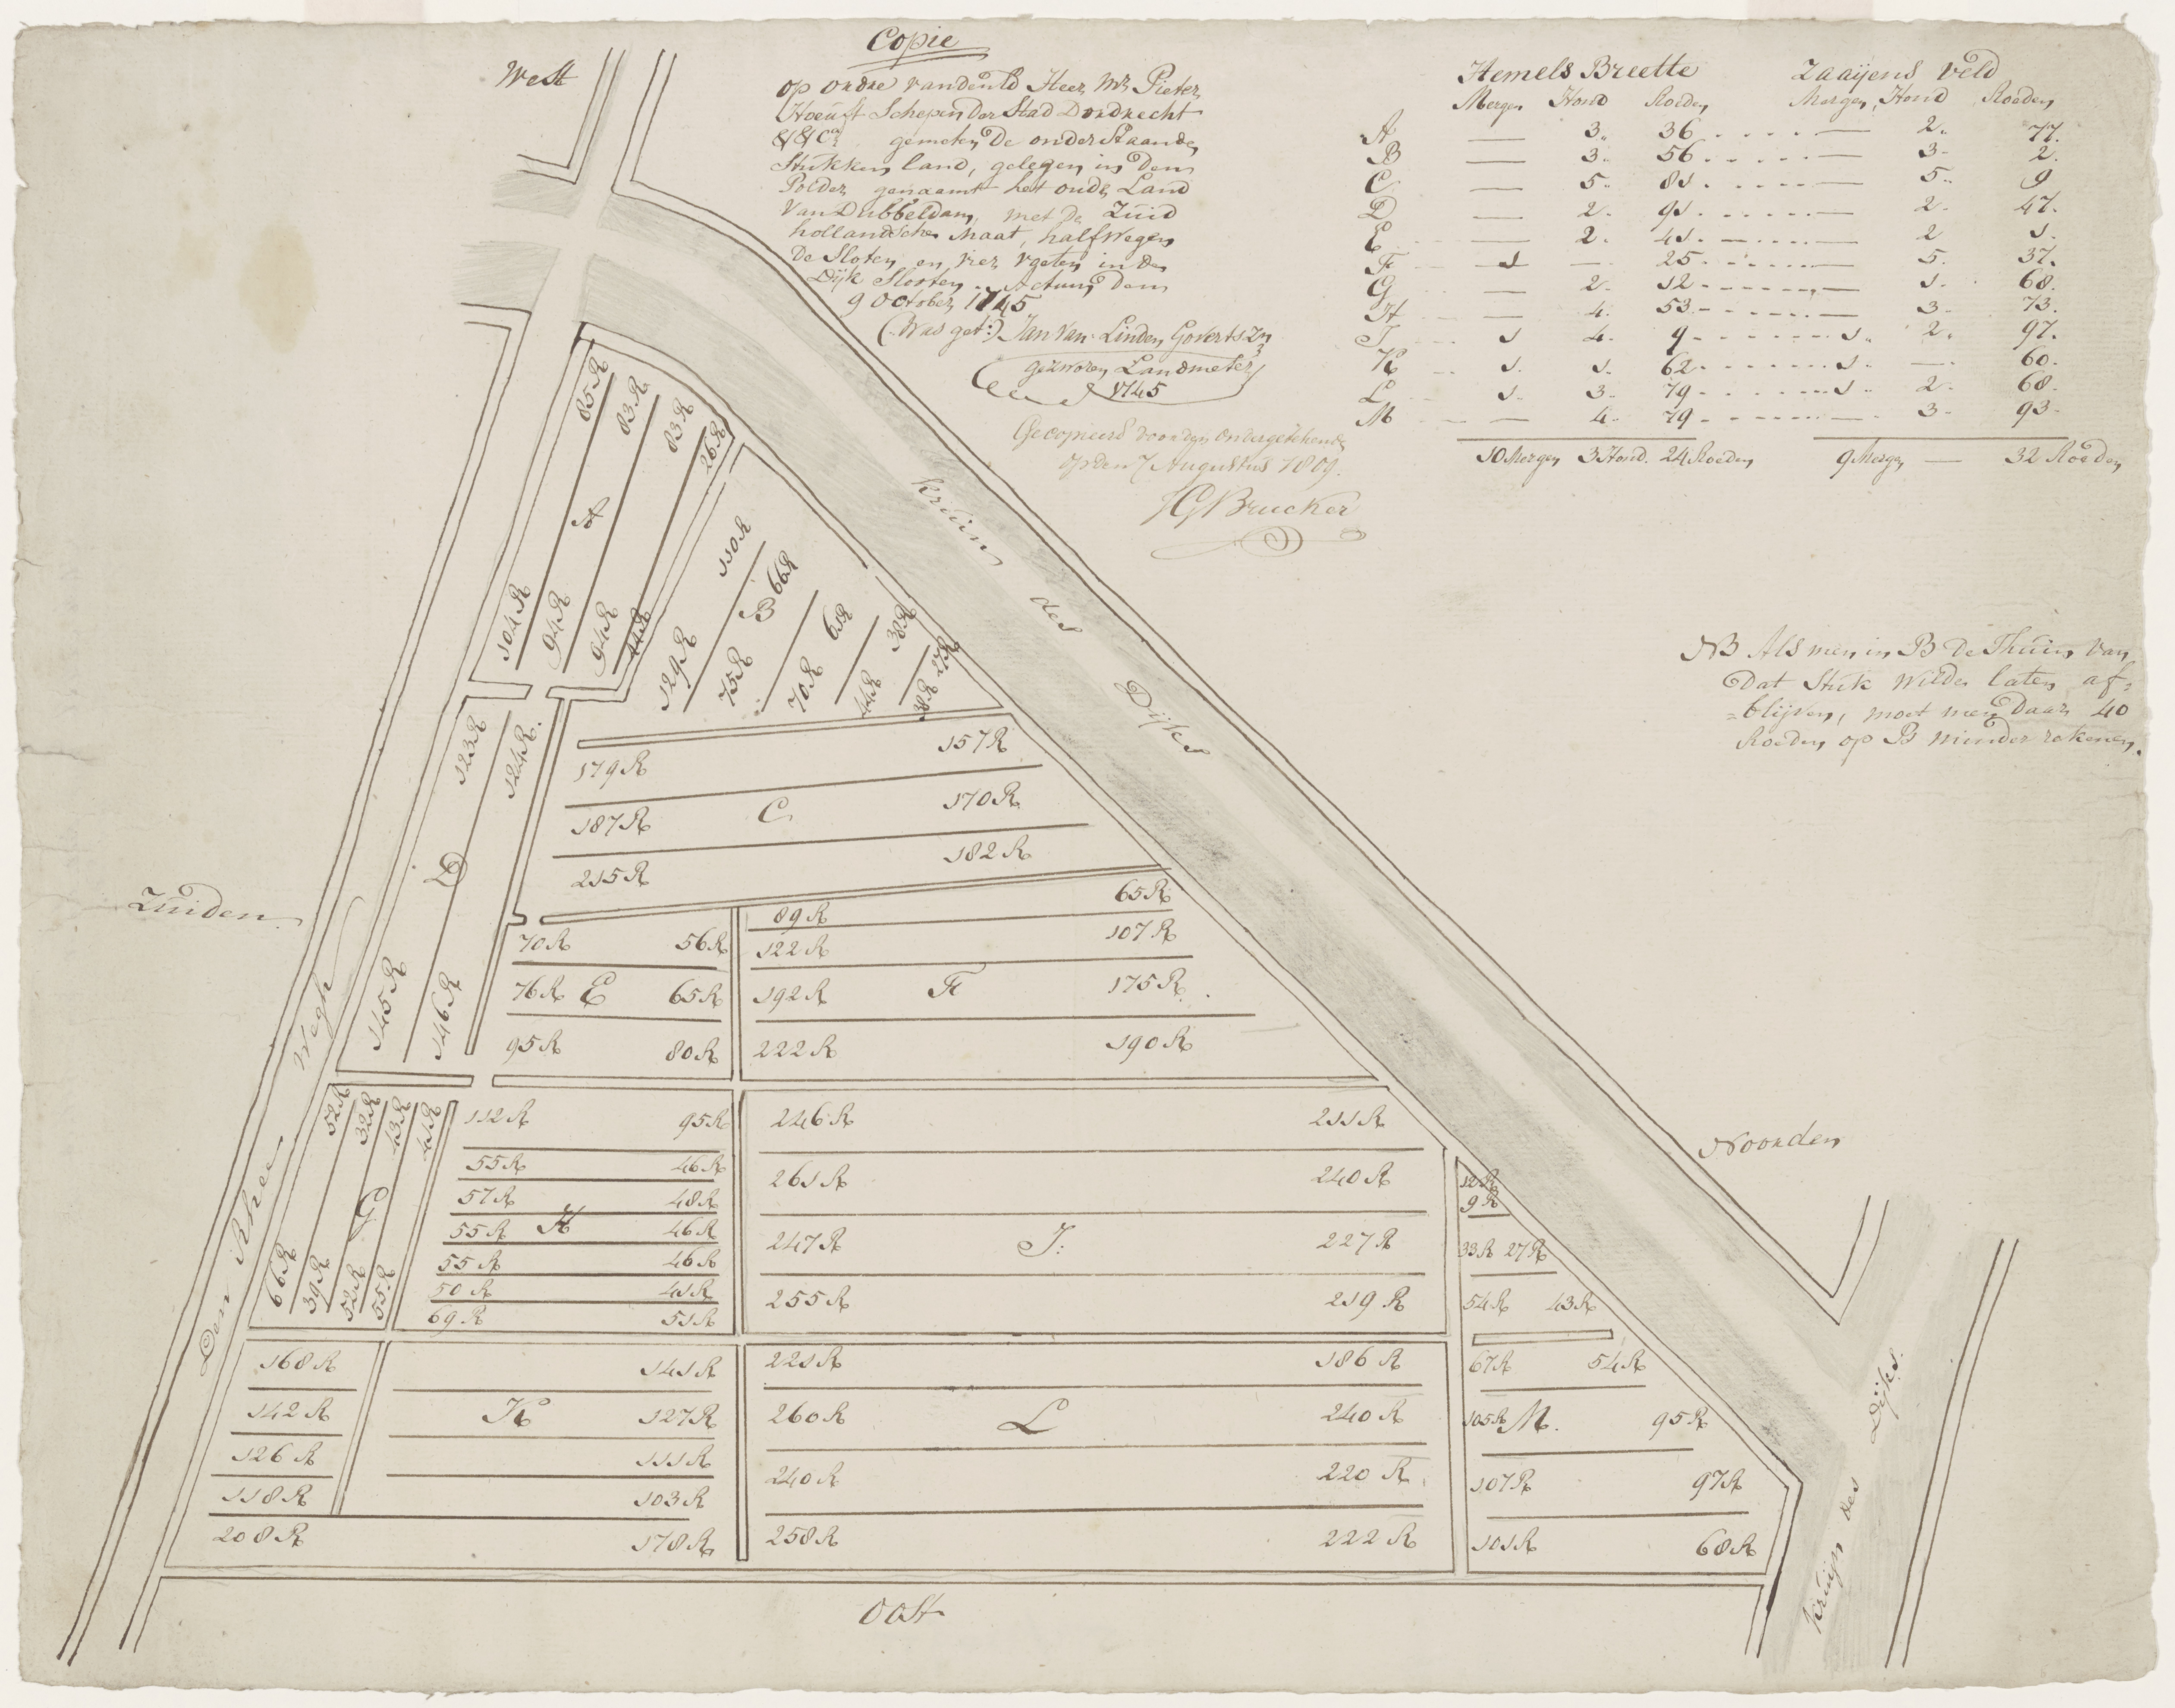 West
Copie
op ordre van den Ed Heer Mr. Pieter
Hoeuft Schepen der Stad Dordrecht
&&Ca. gemeten de onderstaande
Stukken land, gelegen in den
Polder genaamt het oude Land
van Dubbeldam, met de Zuid
hollandsche Maat, halfwegen
de Sloten en vier voeten in de
Dijk Slooten. Actum den
9 October 1745
(Was get:) Jan van Linden Govertszn
gezworen Landmeter
1745
Gecopieerd door den ondergetekende
op den 7 Augustus 1809.
HGBrucker
Hemels Breette Zaaijens veld
Mergen Hond Roeden Mergen Hond Roeden
A — 3. 36 — 2. 77.
B — 3. 56 — 3. 2.
C — 5. 81 — 5. 9
D — 2. 91 — 2. 47.
E — 2. 41 — 2 1.
F 1 — 25 — 5. 37.
G — 2. 12 — 1. 68.
H — 4. 53 — 3. 73.
I 1 4. 9 1. 2. 97.
K 1. 1. 62 1. — 60.
L 1. 3. 79 1. 2. 68.
M — 4. 79 — 3. 93.
10 Mergen 3 Hond. 24 Roeden 9 Mergen — 32 Roeden
NB Als men in B de Thuin van
Dat Stuk wilde laten af=
=blijven, moet men Daar 40
Roeden op B minder rekenen.
kruin des Dijks
85R 83R 83R 26R
A
104R 94R 94R 44R
110R 66R 61R 38R 27R
B
129R 75R 70R 44R 38R
179R 157R
187R C 170R
215R 182R
123R 124R.
D
145R 146R
Zuiden
70R 56R
76R E 65R
95R 80R
89R 65R
122R 107R
192R F 175R
222R 190R
Den Rhee Wegh
52R 32R 43R 41R
G
66R 39R 52R 55R
112R 95R
55R 46R
57R 48R
55R H 46R
55R 46R
50R 41R
69R 51R
246R 211R
261R 240R
247R I: 227R
255R 219R
12R
9R
33R 27R
54R 43R
67R 54R
105R M. 95R
107R 97R
101R 68R
168R 141R
142R K 127R
126R 111R
118R 103R
208R 178R
221R 186R
260R L 240R
240R 220R
258R 222R
Noorden
kruijn des Dijks.
Oost